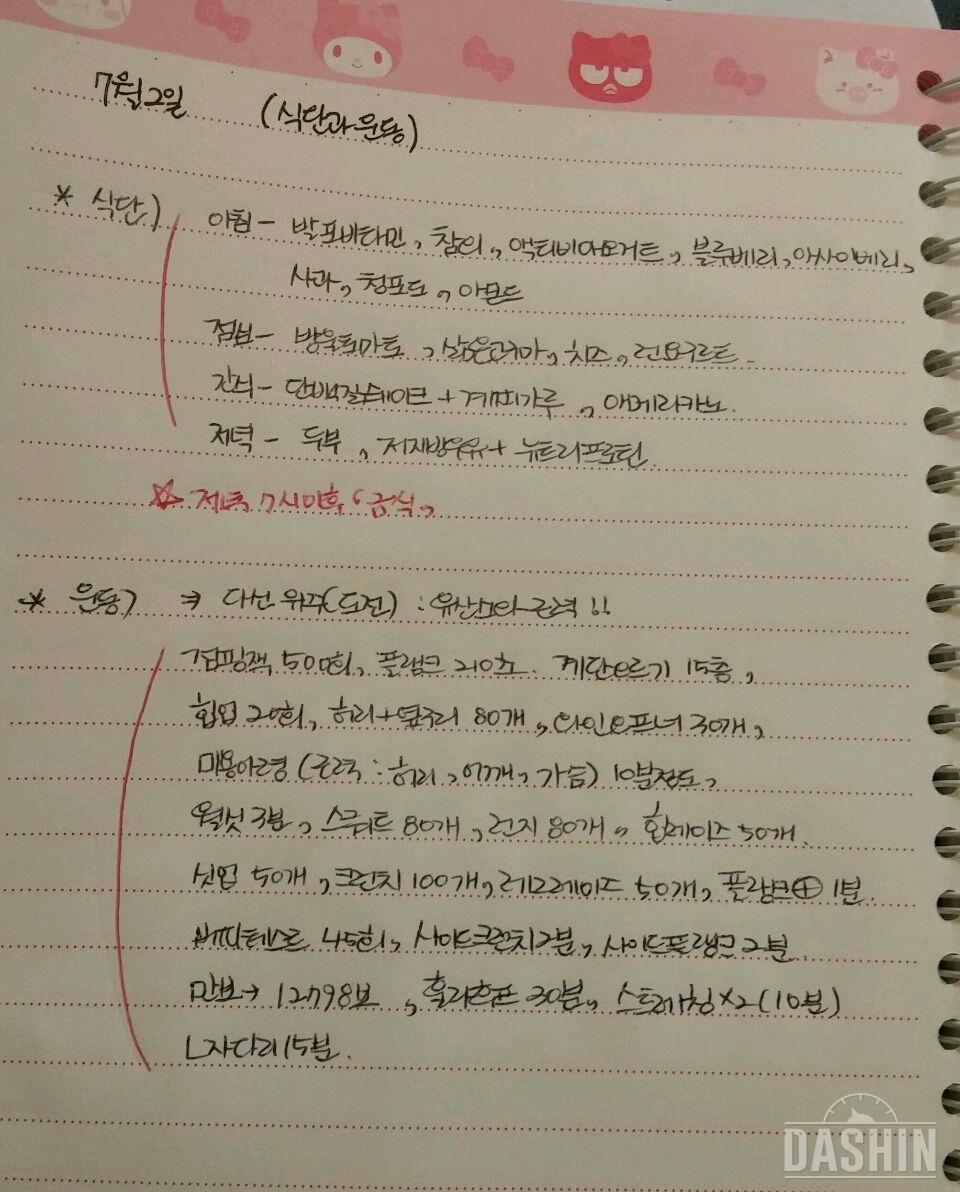 7월2일 (식단과운동)
* 식단) 아침 - 발포비타민, 참외, 액티비아요거트, 블루베리, 아사이베리,
사과, 청포도, 아몬드
점심 - 방울토마토, 삶은고구마, 치즈, 런요구르트.
간식 - 단백질쉐이크 + 계피가루, 아메리카노.
저녁 - 두부, 저지방우유 + 뉴트리프로틴.
☆ 저녁 7시이후 금식,
* 운동) ⇒ 다신 위주(도전) : 유산소와 근력!!
점핑잭 500회, 플랭크 210초. 계단오르기 15층,
힙업 20회, 허리+옆구리 80개, 와인오프너 30개,
미용아령 (근력 : 허리, 어깨, 가슴) 10분정도,
월싯 3분, 스쿼트 80개, 런지 80개, 힙레이즈 50개.
싯업 50개, 크런치 100개, 레그레이즈 50개, 플랭크⊕ 1분.
버피테스트 45회, 사이드크런치 2분, 사이드플랭크 2분
만보→ 12798보, 훌라후프 30분, 스트레칭×2 (10분)
L자다리 15분.
DASHIN